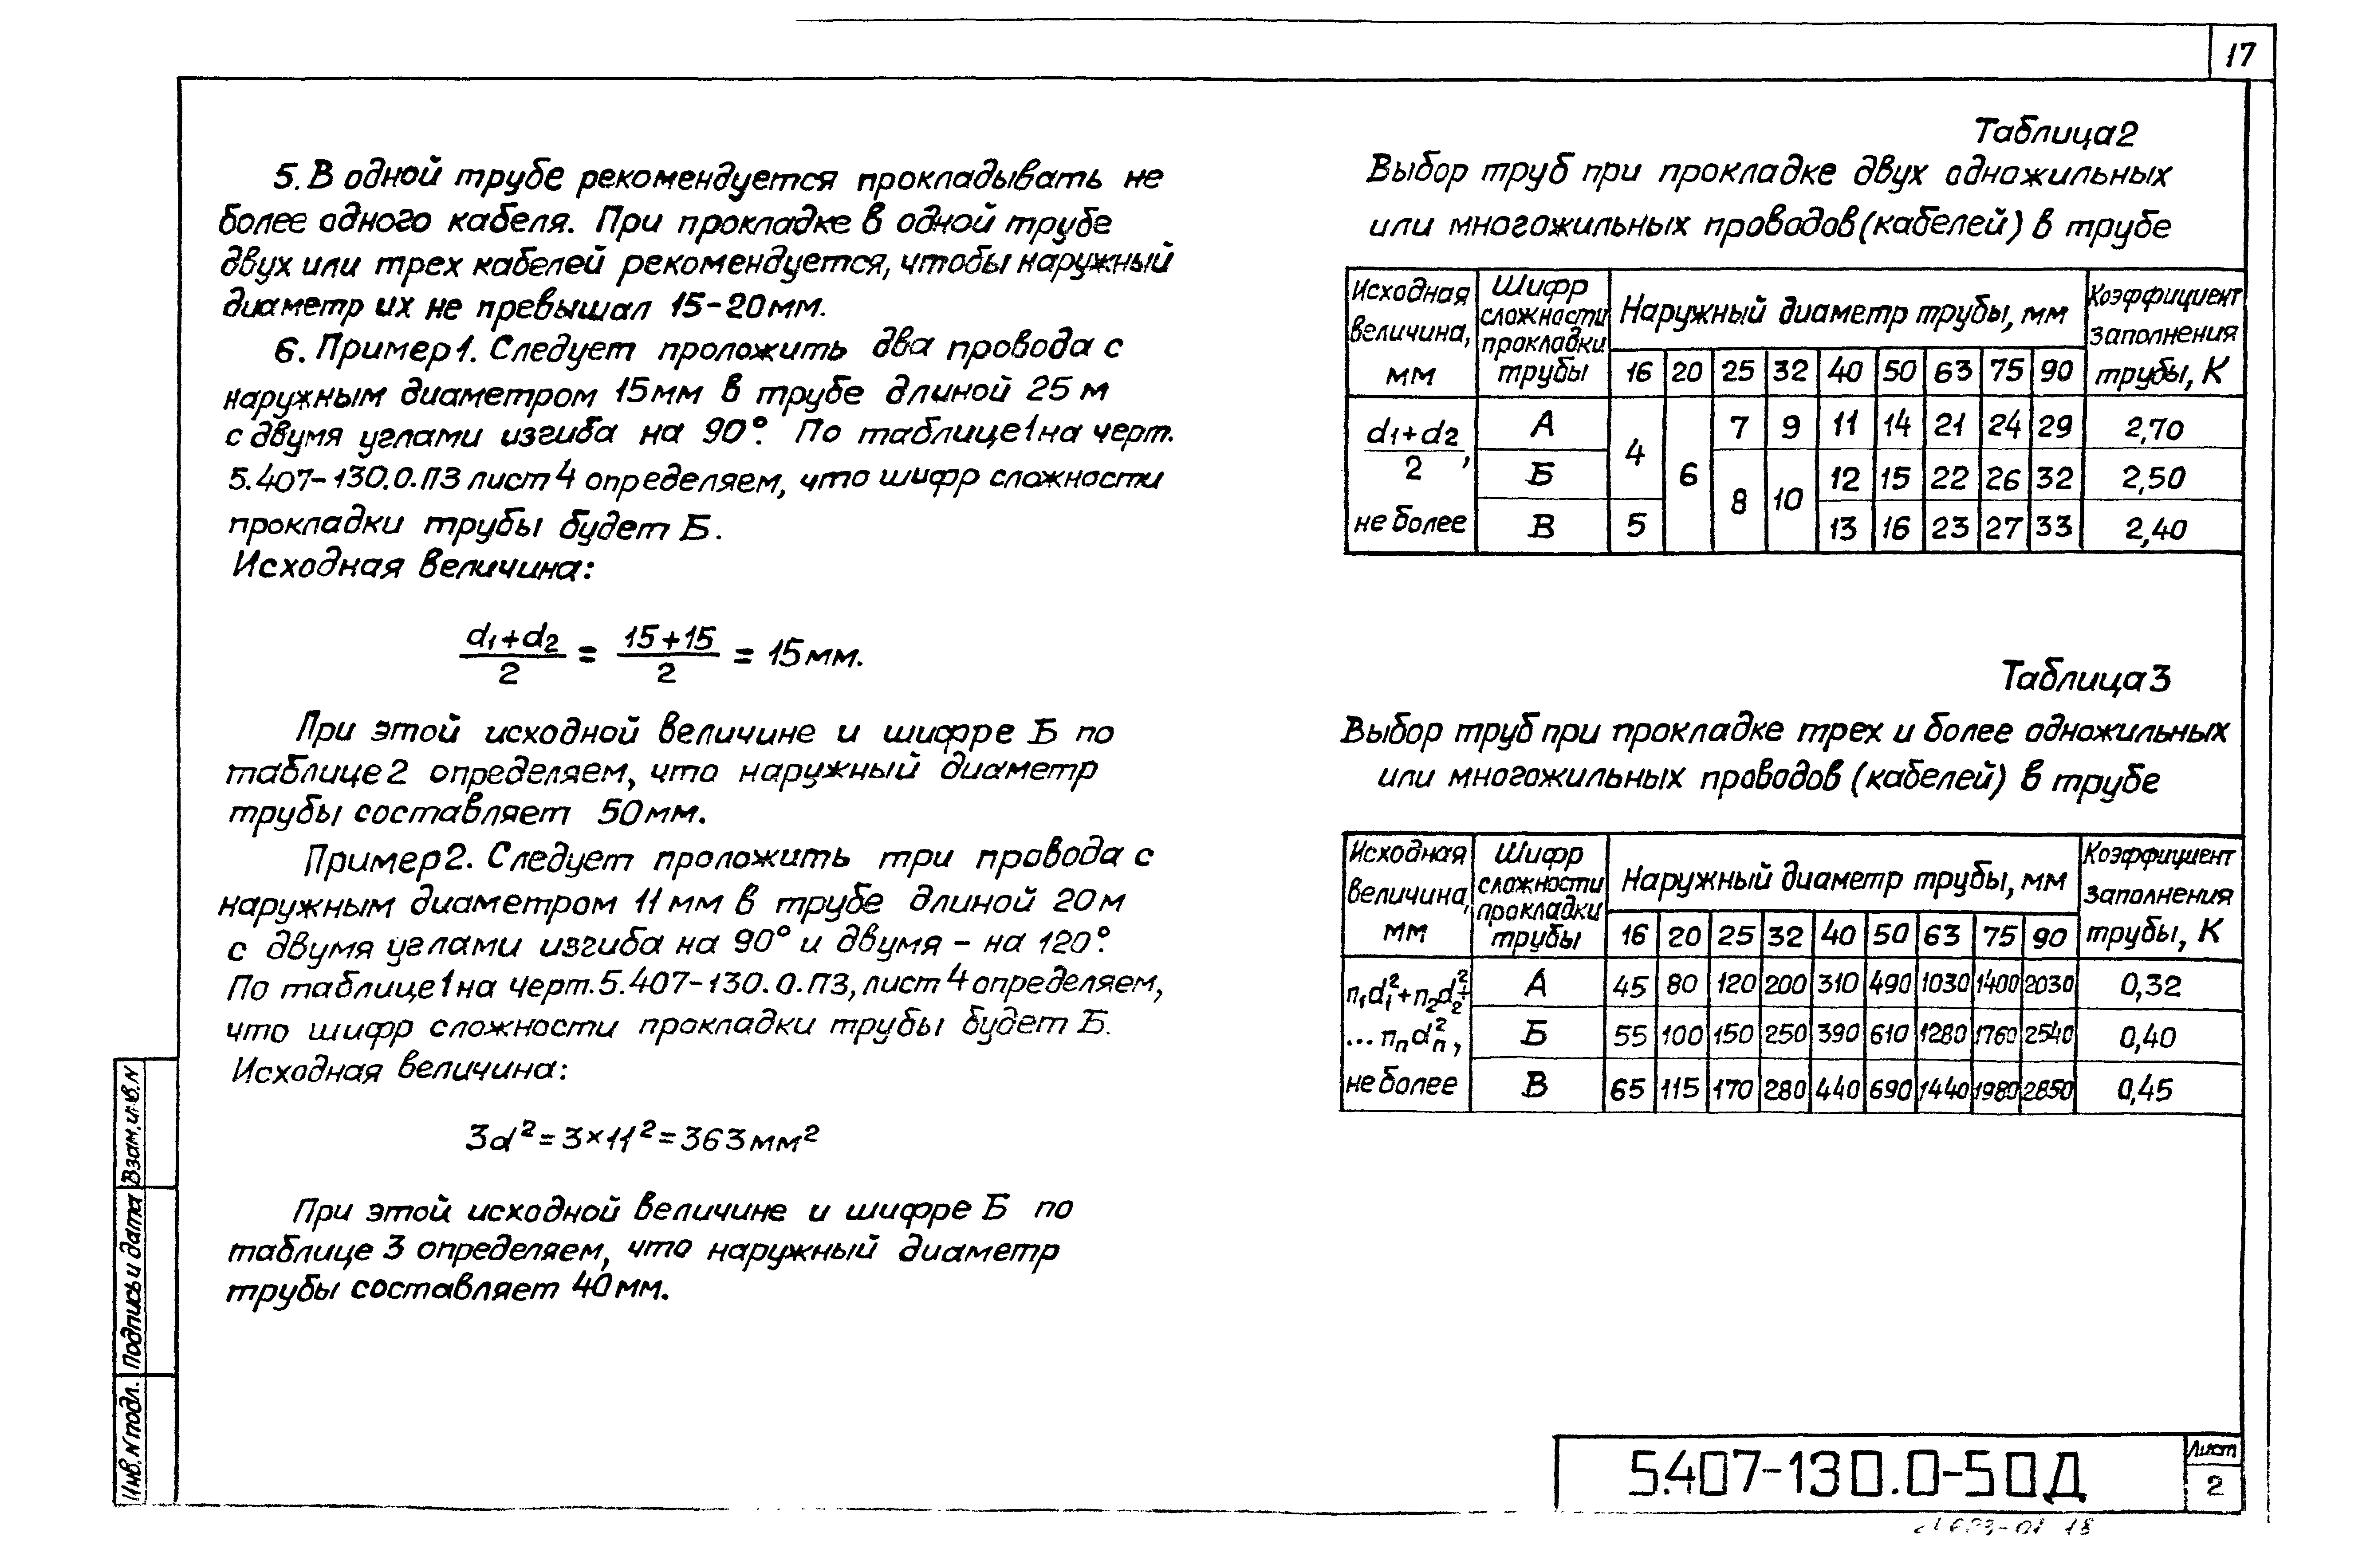 17
5. В одной трубе рекомендуется прокладывать не
более одного кабеля. При прокладке в одной трубе
двух или трех кабелей рекомендуется, чтобы наружный
диаметр их не превышал 15-20мм.
6. Пример 1. Следует проложить два провода с
наружным диаметром 15мм в трубе длиной 25 м
с двумя углами изгиба на 90°. По таблице 1 на черт.
5.407-130.0.ПЗ лист 4 определяем, что шифр сложности
прокладки трубы будет Б.
Исходная величина:
(d₁+d₂)/2 = (15+15)/2 = 15мм.
При этой исходной величине и шифре Б по
таблице 2 определяем, что наружный диаметр
трубы составляет 50мм.
Пример 2. Следует проложить три провода с
наружным диаметром 11 мм в трубе длиной 20м
с двумя углами изгиба на 90° и двумя - на 120°.
По таблице 1 на черт. 5.407-130.0.ПЗ, лист 4 определяем,
что шифр сложности прокладки трубы будет Б.
Исходная величина:
3d²=3×11²=363мм²
При этой исходной величине и шифре Б по
таблице 3 определяем, что наружный диаметр
трубы составляет 40мм.
Таблица 2
Выбор труб при прокладке двух одножильных
или многожильных проводов (кабелей) в трубе
Исходная величина, мм | Шифр сложности прокладки трубы | Наружный диаметр трубы, мм | Коэффициент заполнения трубы, К
16 20 25 32 40 50 63 75 90
(d₁+d₂)/2, не более
А 4 6 7 9 11 14 21 24 29 2,70
Б 8 10 12 15 22 26 32 2,50
В 5 13 16 23 27 33 2,40
Таблица 3
Выбор труб при прокладке трех и более одножильных
или многожильных проводов (кабелей) в трубе
Исходная величина, мм | Шифр сложности прокладки трубы | Наружный диаметр трубы, мм | Коэффициент заполнения трубы, К
16 20 25 32 40 50 63 75 90
n₁d₁²+n₂d₂²+ ... nₙdₙ², не более
А 45 80 120 200 310 490 1030 1400 2030 0,32
Б 55 100 150 250 390 610 1280 1760 2540 0,40
В 65 115 170 280 440 690 1440 1980 2850 0,45
Инв. N подл. Подпись и дата Взам. инв. N
5.407-130.0-50Д
Лист
2
18